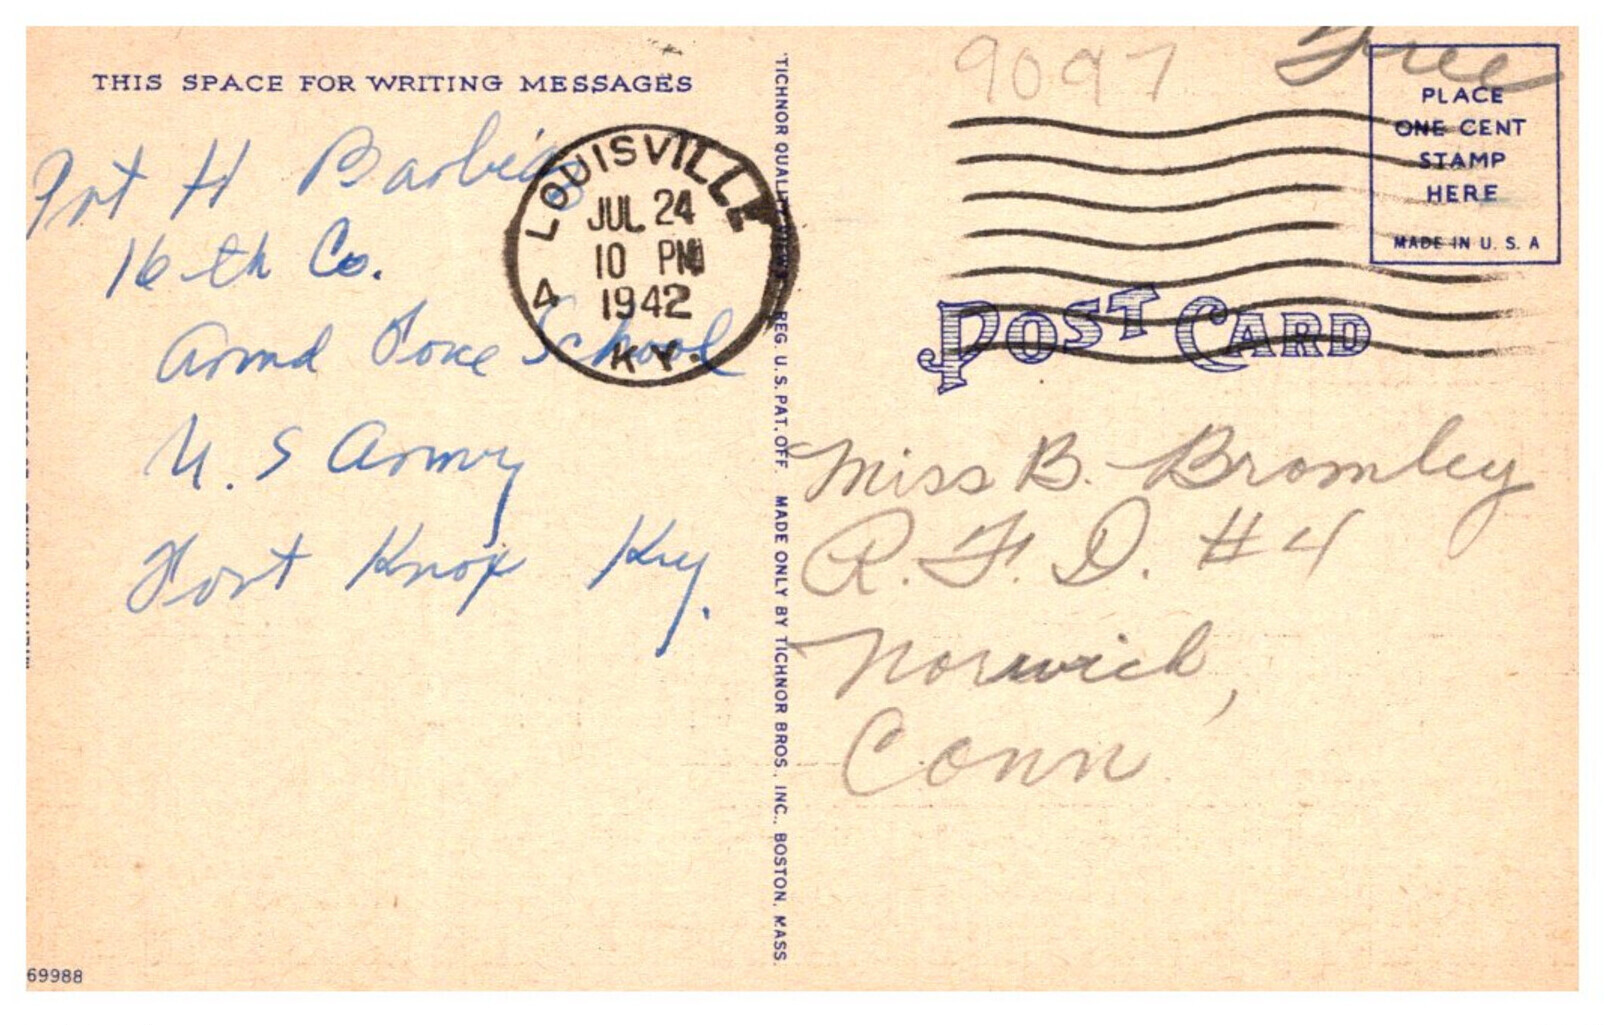 THIS SPACE FOR WRITING MESSAGES
Pvt H
16 th Co.
Armd Force School
U. S Army
Fort Knox Ky.
LOUISVILLE
JUL 24
10 PM
1942
4
KY.
"TICHNOR QUALITY VIEWS," REG. U. S. PAT. OFF. MADE ONLY BY TICHNOR BROS., INC., BOSTON, MASS.
9097
Free
PLACE
ONE CENT
STAMP
HERE
MADE IN U. S. A
POST CARD
Miss B. Bromley
R. F. D. #4
Norwich,
Conn
69988